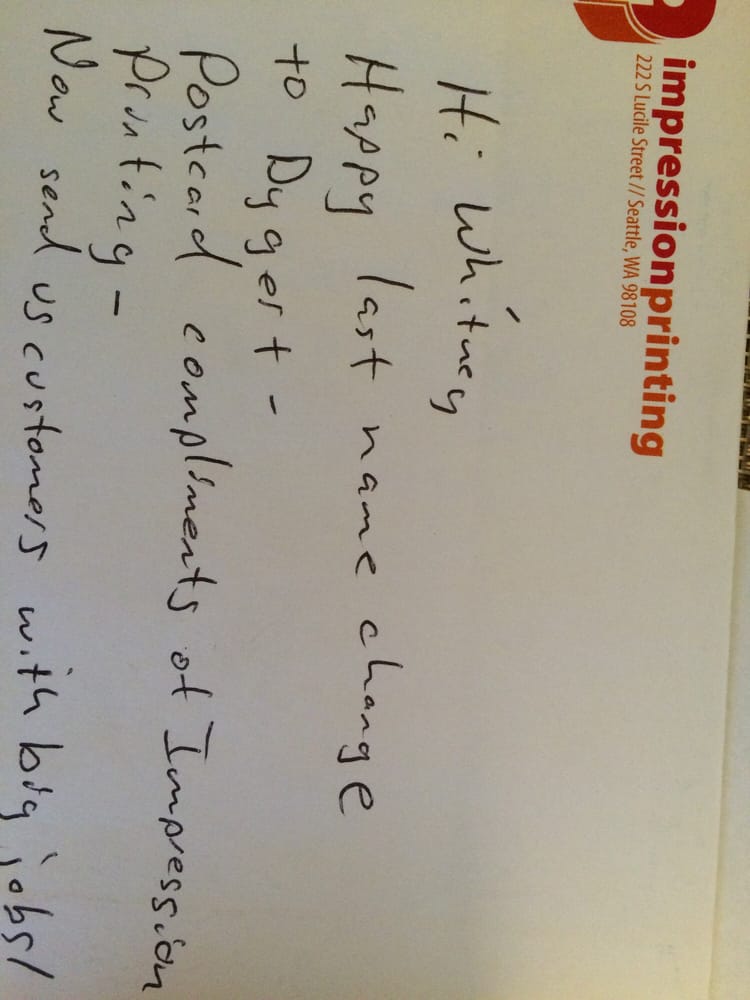 impressionprinting
222 S Lucile Street // Seattle, WA 98108
Hi Whitney
Happy last name change
to Dygert -
Postcard compliments of Impression
Printing -
Now send us customers with big jobs!